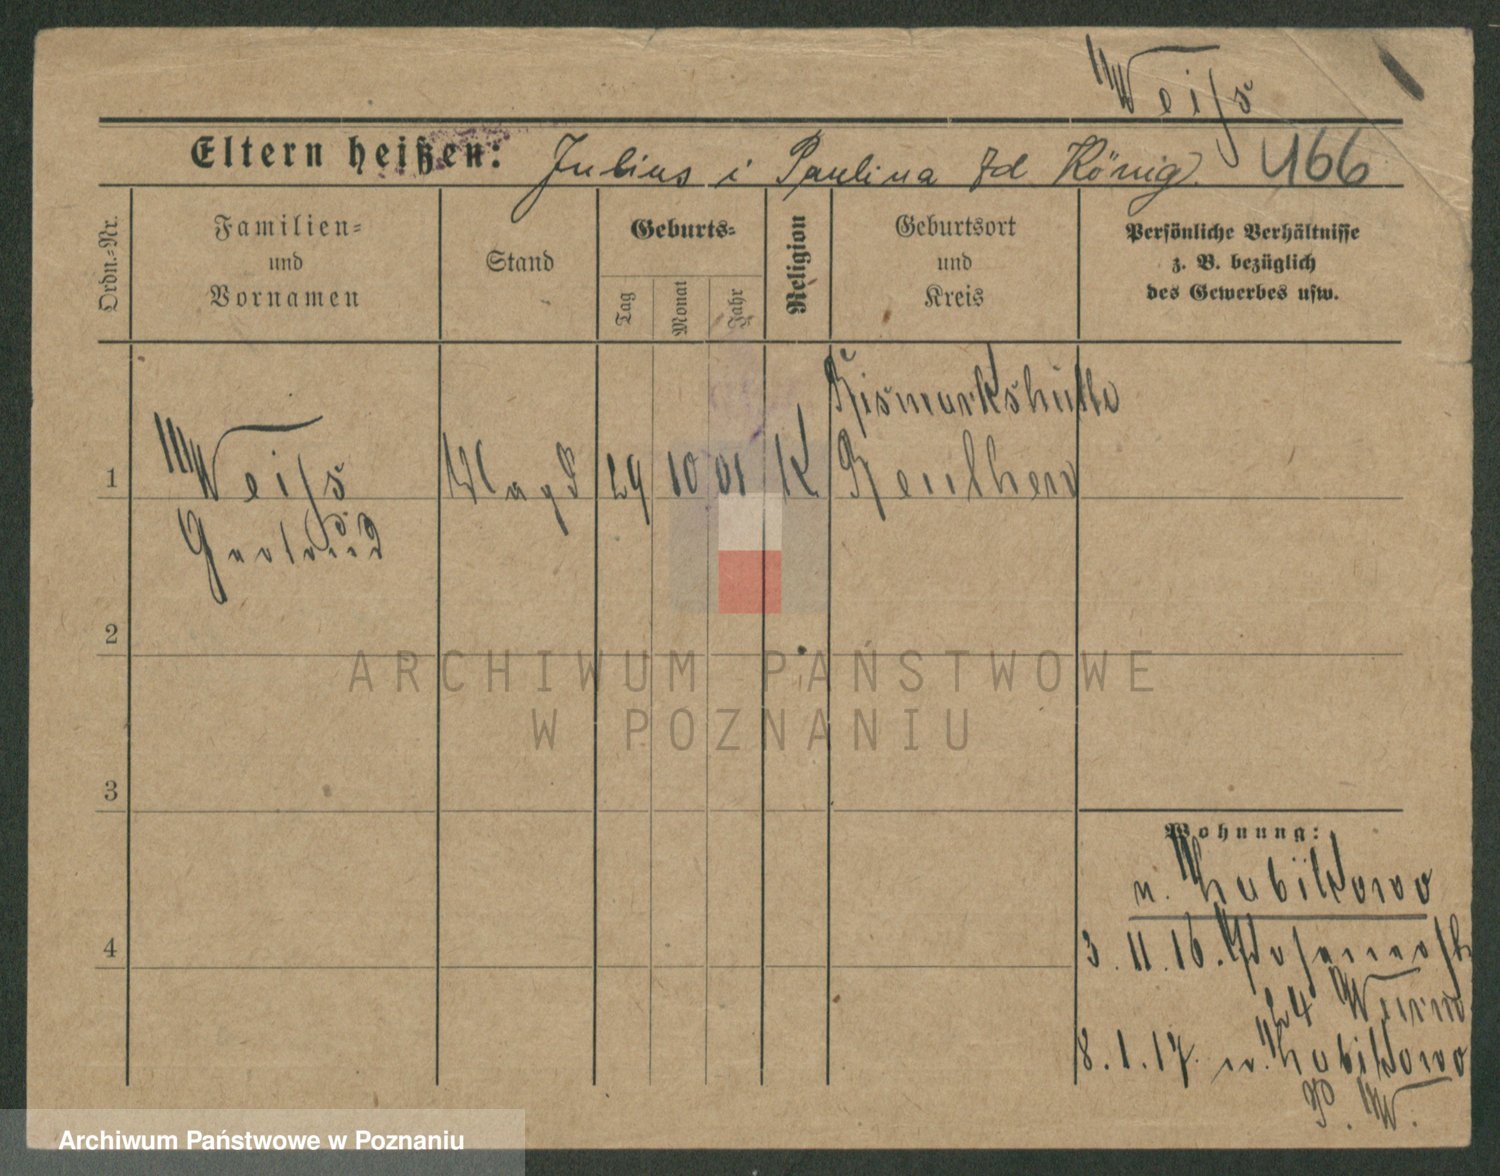 Weiſs
Eltern heißen: Julius i Paulina zd König. 466
Ordn.-Nr.
Familien-
und
Vornamen
Stand
Geburts-
Tag
Monat
Jahr
Religion
Geburtsort
und
Kreis
Persönliche Verhältnisse
z. B. bezüglich
des Gewerbes usw.
Bismarkshütte
1 Weiſs Magd 29 10 01 K Beuthen
Gertrud
2
ARCHIWUM PAŃSTWOWE
W POZNANIU
3
Wohnung:
n. Zabikowo
4
3.11.16.
24
8.1.17. n. Zabikowo
P. W.
Archiwum Państwowe w Poznaniu